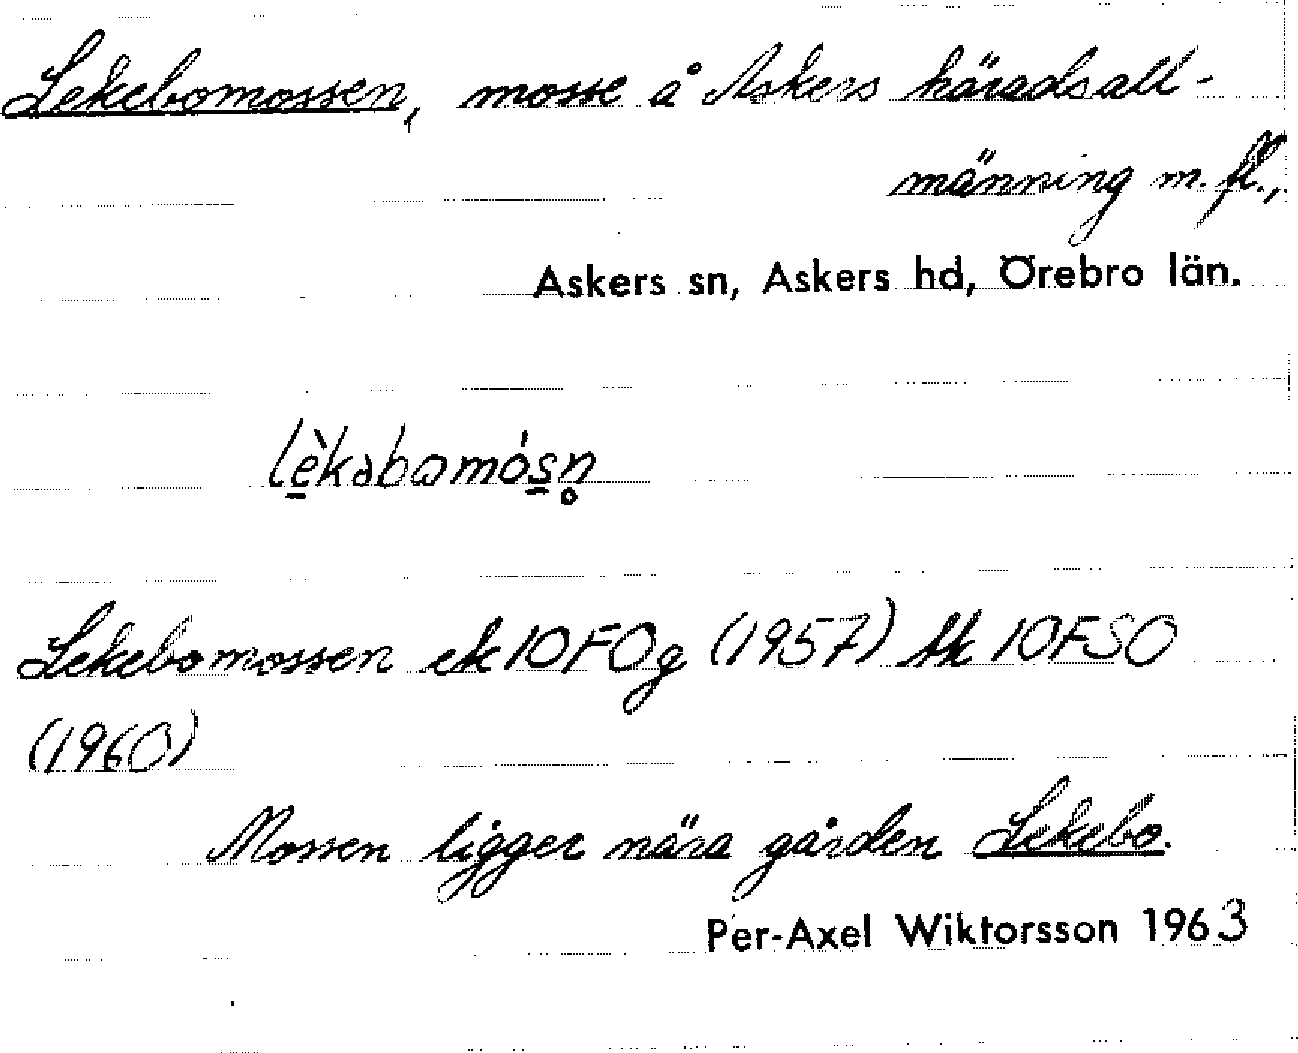 Lekebomossen, mosse å Askers häradsall-
männing m. fl.,
Askers sn, Askers hd, Örebro län.
lèkəbωmósn̥
Lekebomossen ek 10F0g (1957) tk 10FSO
(1960)
Mossen ligger nära gården Lekebo.
Per-Axel Wiktorsson 1963